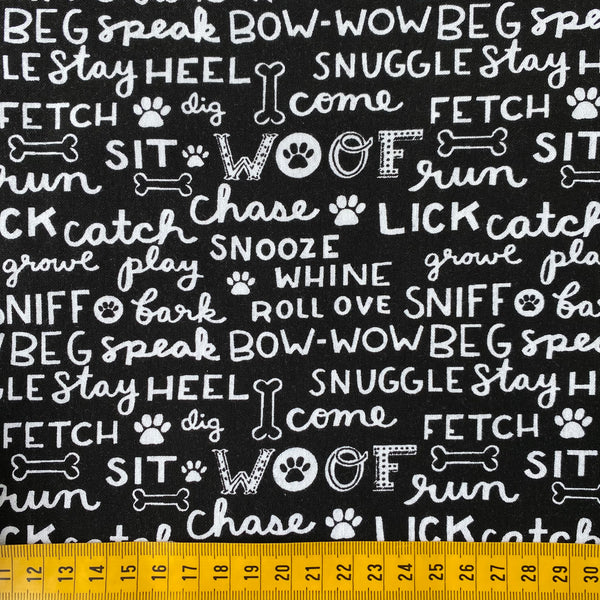 BEG speak BOW-WOW BEG speak
GLE stay HEEL SNUGGLE stay HE
FETCH dig come FETCH
SIT WOOF SIT
run run
chase
LICK catch LICK catch
growe play SNOOZE growe play
WHINE
SNIFF bark ROLL OVE SNIFF bark
WBEG speak BOW-WOW BEG speak
GLE stay HEEL SNUGGLE stay H
FETCH dig come FETCH
SIT WOOF SIT
run run
chase LICK catch
catch
11 12 13 14 15 16 17 18 19 20 21 22 23 24 25 26 27 28 29 30